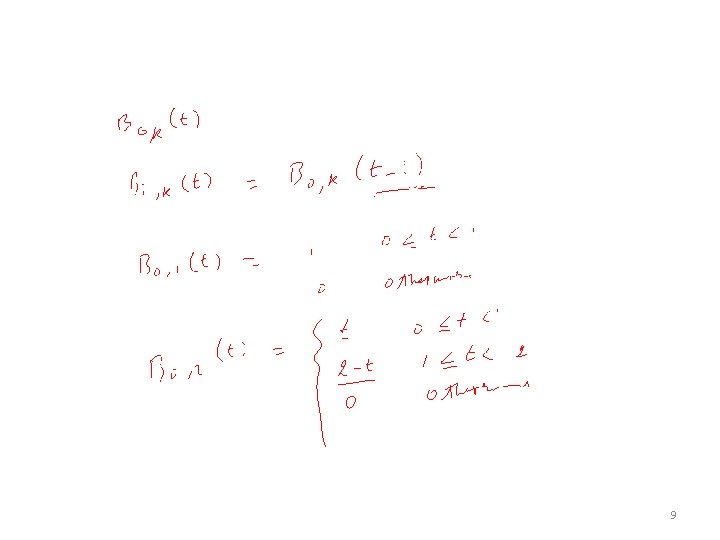 B0,k(t)
Bi,k(t) = B0,k(t-i)
B0,1(t) = 1 0 ≤ t < 1
0 otherwise
B0,2(t) = { t 0 ≤ t < 1
2-t 1 ≤ t < 2
0 otherwise
9